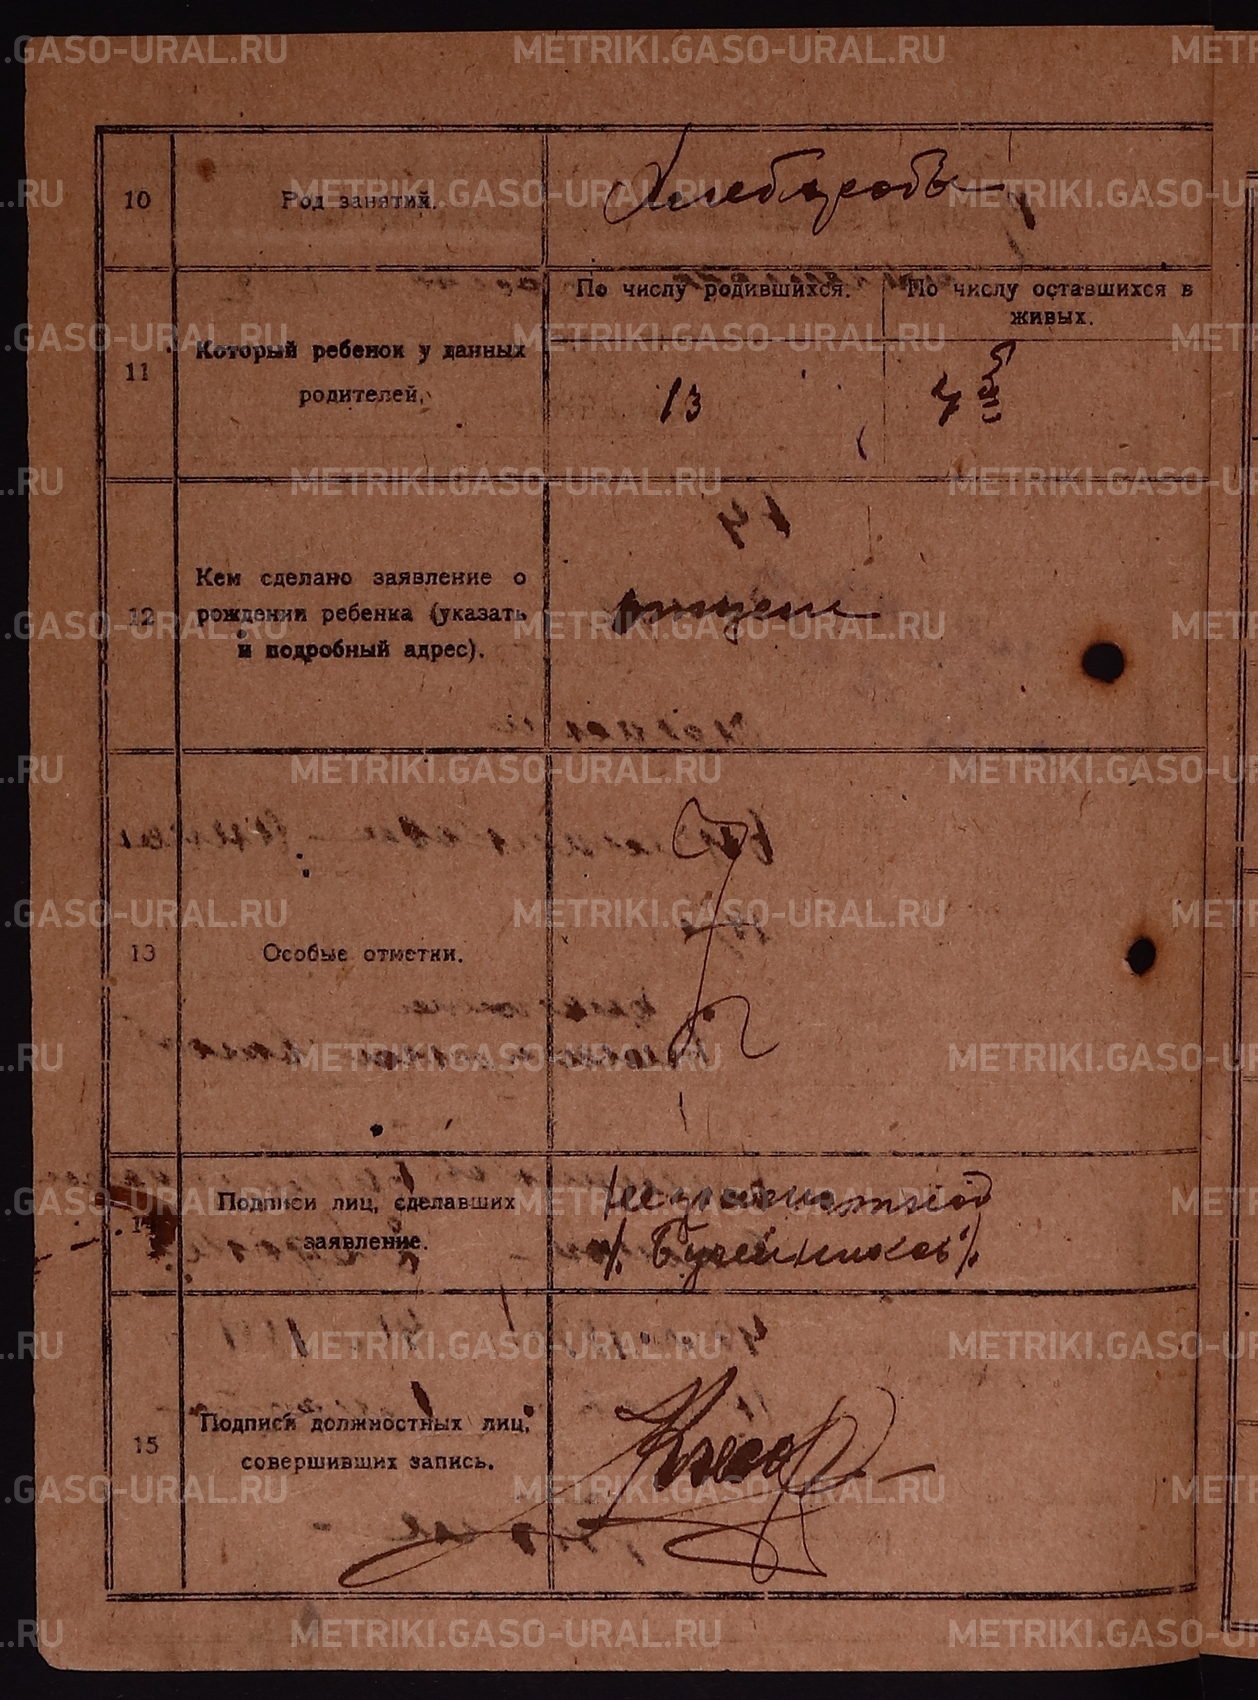 10
Род занятий.
Хлебороб
11
Который ребенок у данных
родителей.
По числу родившихся.
По числу оставшихся в
живых.
13
12
Кем сделано заявление о
рождении ребенка (указать
и подробный адрес).
отцем
13
Особые отметки.
14
Подписи лиц, сделавших
заявление.
неграмотной
15
Подписи должностных лиц,
совершивших запись.
METRIKI.GASO-URAL.RU